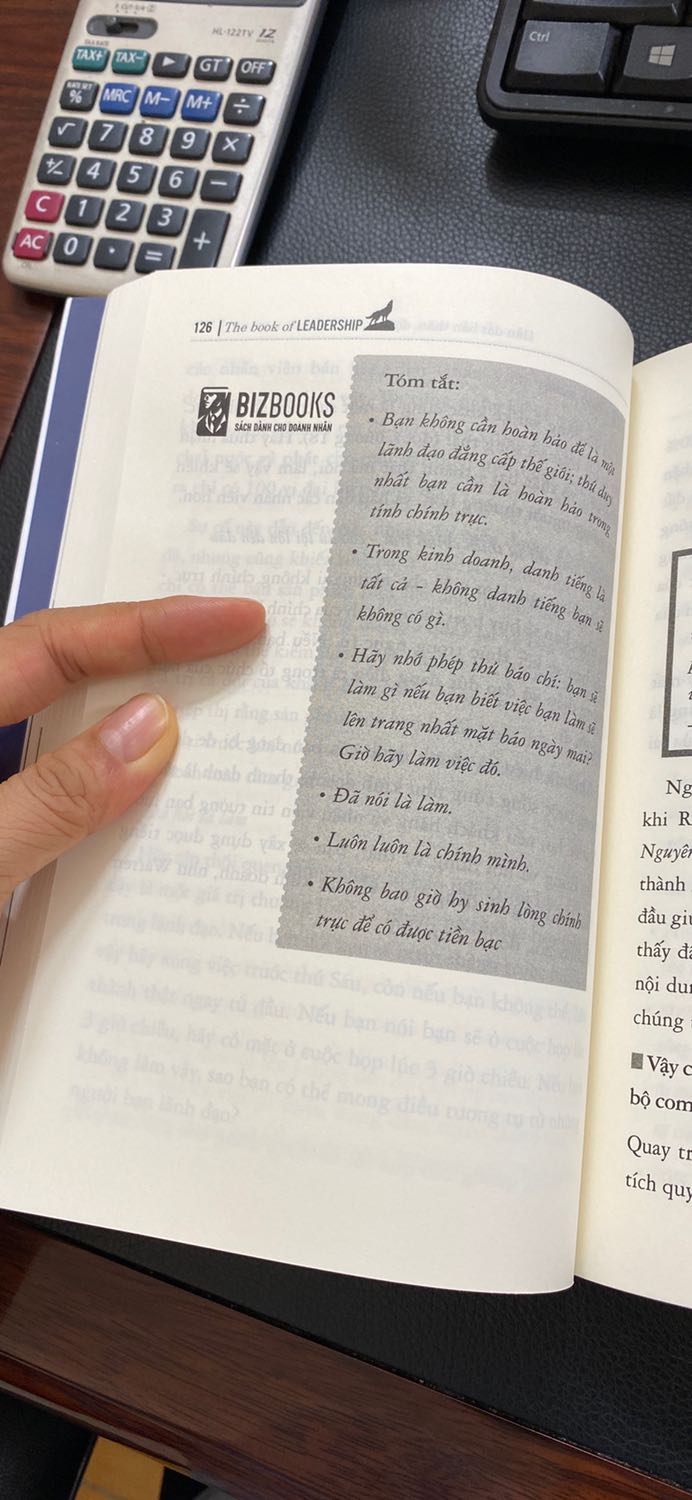 HL-122TV 12
TAX RATE
TAX+ TAX− ▶ GT OFF
RATE SET
% MRC M− M+ ÷
√ 7 8 9 ×
+/− 4 5 6 −
C 1 2 3
AC 0 · = +
Ctrl
126 | The book of LEADERSHIP
BIZBOOKS
SÁCH DÀNH CHO DOANH NHÂN
Tóm tắt:
• Bạn không cần hoàn hảo để là một
lãnh đạo đẳng cấp thế giới; thứ duy
nhất bạn cần là hoàn hảo trong
tính chính trực.
• Trong kinh doanh, danh tiếng là
tất cả - không danh tiếng bạn sẽ
không có gì.
• Hãy nhớ phép thử báo chí: bạn sẽ
làm gì nếu bạn biết việc bạn làm sẽ
lên trang nhất mặt báo ngày mai?
Giờ hãy làm việc đó.
• Đã nói là làm.
• Luôn luôn là chính mình.
• Không bao giờ hy sinh lòng chính
trực để có được tiền bạc
Ng
khi R
Nguyên
thành
đầu giu
thấy đâ
nội dun
chúng
Vậy c
bộ com
Quay tr
tích quy